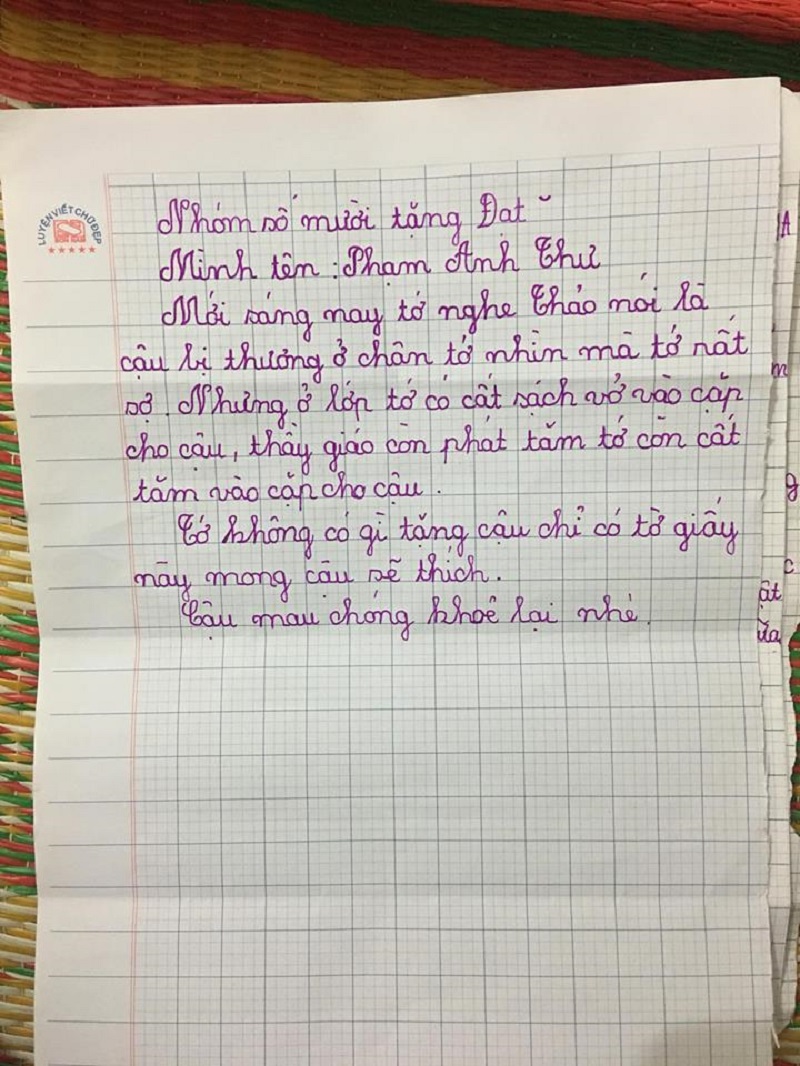 LUYỆN VIẾT CHỮ ĐẸP
Nhóm số mười tặng Đạt
Mình tên : Phạm Anh Thư
Mới sáng nay tớ nghe Thảo nói là
cậu bị thương ở chân tớ nhìn mà tớ nất
sợ. Nhưng ở lớp tớ có cất sách vở vào cặp
cho cậu, thầy giáo còn phát tăm tớ còn cất
tăm vào cặp cho cậu.
Tớ không có gì tặng cậu chỉ có tờ giấy
này mong cậu sẽ thích.
Cậu mau chóng khoẻ lại nhé.
A
m
g
c
ật
ữa